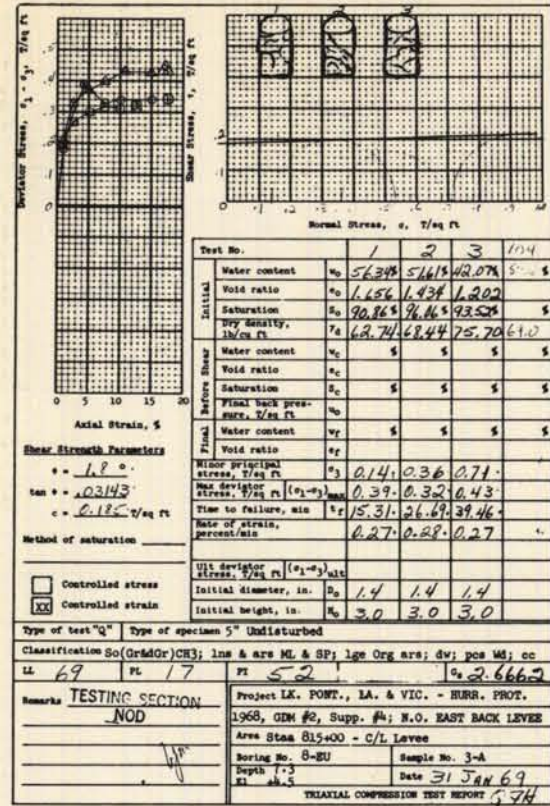 1 2 3
Deviator Stress, σ1 - σ3, T/sq ft
Shear Stress, τ, T/sq ft
.5
.4
.3
.2
.1
0
.2
0
0 .1 .2 .3 .4 .5 .6 .7 .8 .9
Normal Stress, σ, T/sq ft
0 5 10 15 20
Axial Strain, %
Shear Strength Parameters
φ = 1.8 °
tan φ = .03143
c = 0.185 T/sq ft
Method of saturation
Controlled stress
XX Controlled strain
Test No. 1 2 3
Initial
Water content wo 56.34% 51.61% 42.07% %
Void ratio eo 1.656 1.434 1.202
Saturation So 90.86% 96.16% 93.52% %
Dry density, lb/cu ft γd 62.74 68.44 75.70 69.0
Before Shear
Water content wc % % % %
Void ratio ec
Saturation Sc % % % %
Final back pressure, T/sq ft uo
Final
Water content wf % % % %
Void ratio ef
Minor principal stress, T/sq ft σ3 0.14 0.36 0.71
Max deviator stress, T/sq ft (σ1-σ3)max 0.39 0.32 0.43
Time to failure, min tf 15.31 26.69 39.46
Rate of strain, percent/min 0.27 0.28 0.27
Ult deviator stress, T/sq ft (σ1-σ3)ult
Initial diameter, in. Do 1.4 1.4 1.4
Initial height, in. Ho 3.0 3.0 3.0
Type of test "Q" Type of specimen 5" Undisturbed
Classification So(Gr&dGr)CH3; lns & ars ML & SP; lge Org ars; dw; pcs Wd; cc
LL 69 PL 17 PI 52 Gs 2.6662
Remarks TESTING SECTION
NOD
Project LK. PONT., LA. & VIC. - HURR. PROT.
1968, GDM #2, Supp. #4; N.O. EAST BACK LEVEE
Area Staa 815+00 - C/L Levee
Boring No. 8-EU Sample No. 3-A
Depth 7.3
El +4.5
Date 31 JAN 69
TRIAXIAL COMPRESSION TEST REPORT